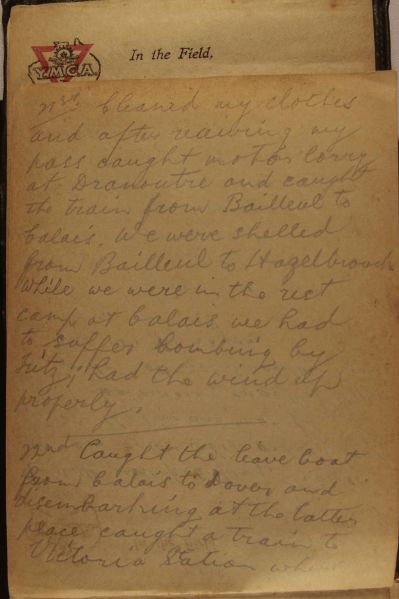 Y.M.C.A.
In the Field,
21st Cleaned my clothes
and after receiving my
pass caught motor lorry
at Dranoutre and caught
the train from Bailleul to
Calais. We were shelled
from Bailleul to Hazelbrouck
While we were in the rest
camp at Calais we had
to suffer bombing by
Fritz, had the wind up
properly.
22nd Caught the leave boat
from Calais to Dover and
disembarking at the latter
place caught a train to
Victoria Station where